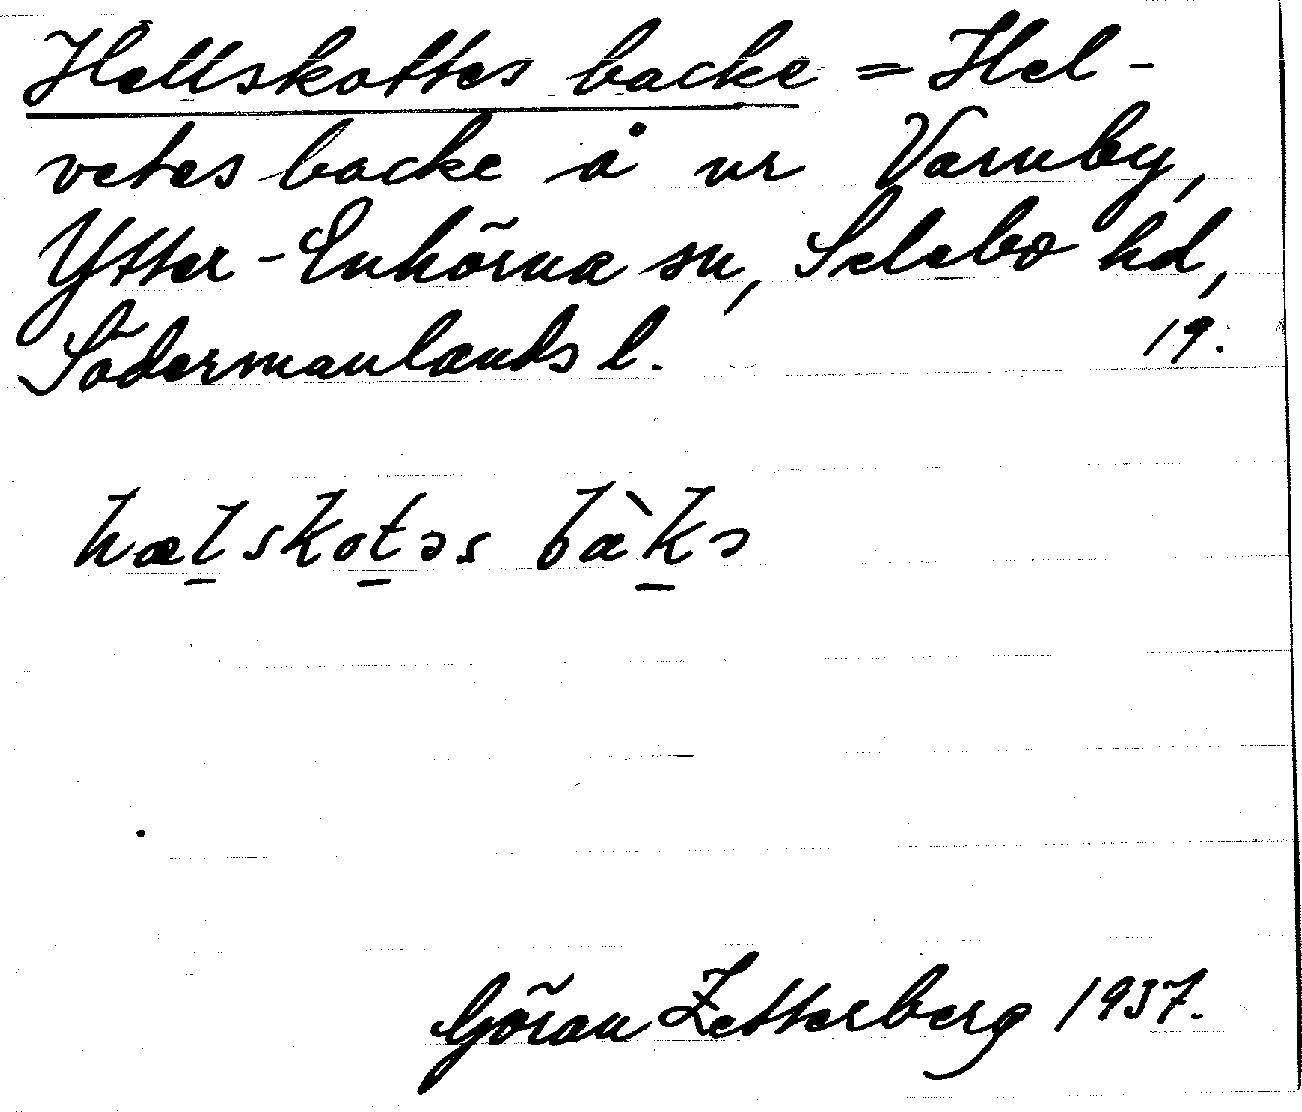 Hellskottes backe = Hel-
vetes backe å nr Varnby,
Ytter-Enhörna sn, Selebo hd,
Södermanlands l. 19.
hælskotəs bàkə
Göran Zetterberg 1937.